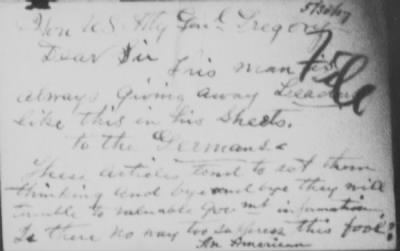 5/30/17
Hon U.S. Atty Genl. Gregory
Dear Sir
This man is
always giving away Leaders
like this in his Sheets.
to the Germans.
These articles tend to set them
thinking and bye and bye they will
to valuable Govmt information,
Is there no way too suppress this fool?
An American